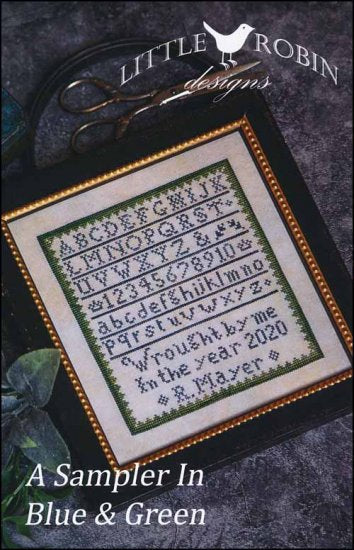 LITTLE ROBIN
designs
ABCDEFGHIJK
LMNOPQRST
UVWXYZ &
12345678910
abcdefghijklmno
pqrstuvwxyz
Wrought by me
In the year 2020
R. Mayer
A Sampler In
Blue & Green